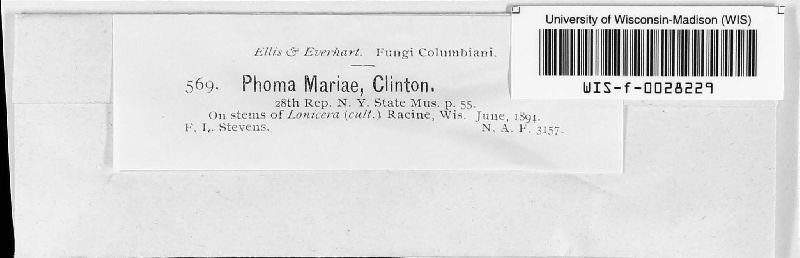 University of Wisconsin-Madison (WIS)
WIS-f-0028229
Ellis & Everhart. Fungi Columbiani.
569. Phoma Mariae, Clinton.
28th Rep. N. Y. State Mus. p. 55.
On stems of Lonicera (cult.) Racine, Wis. June, 1894.
F. L. Stevens. N. A. F. 3157.